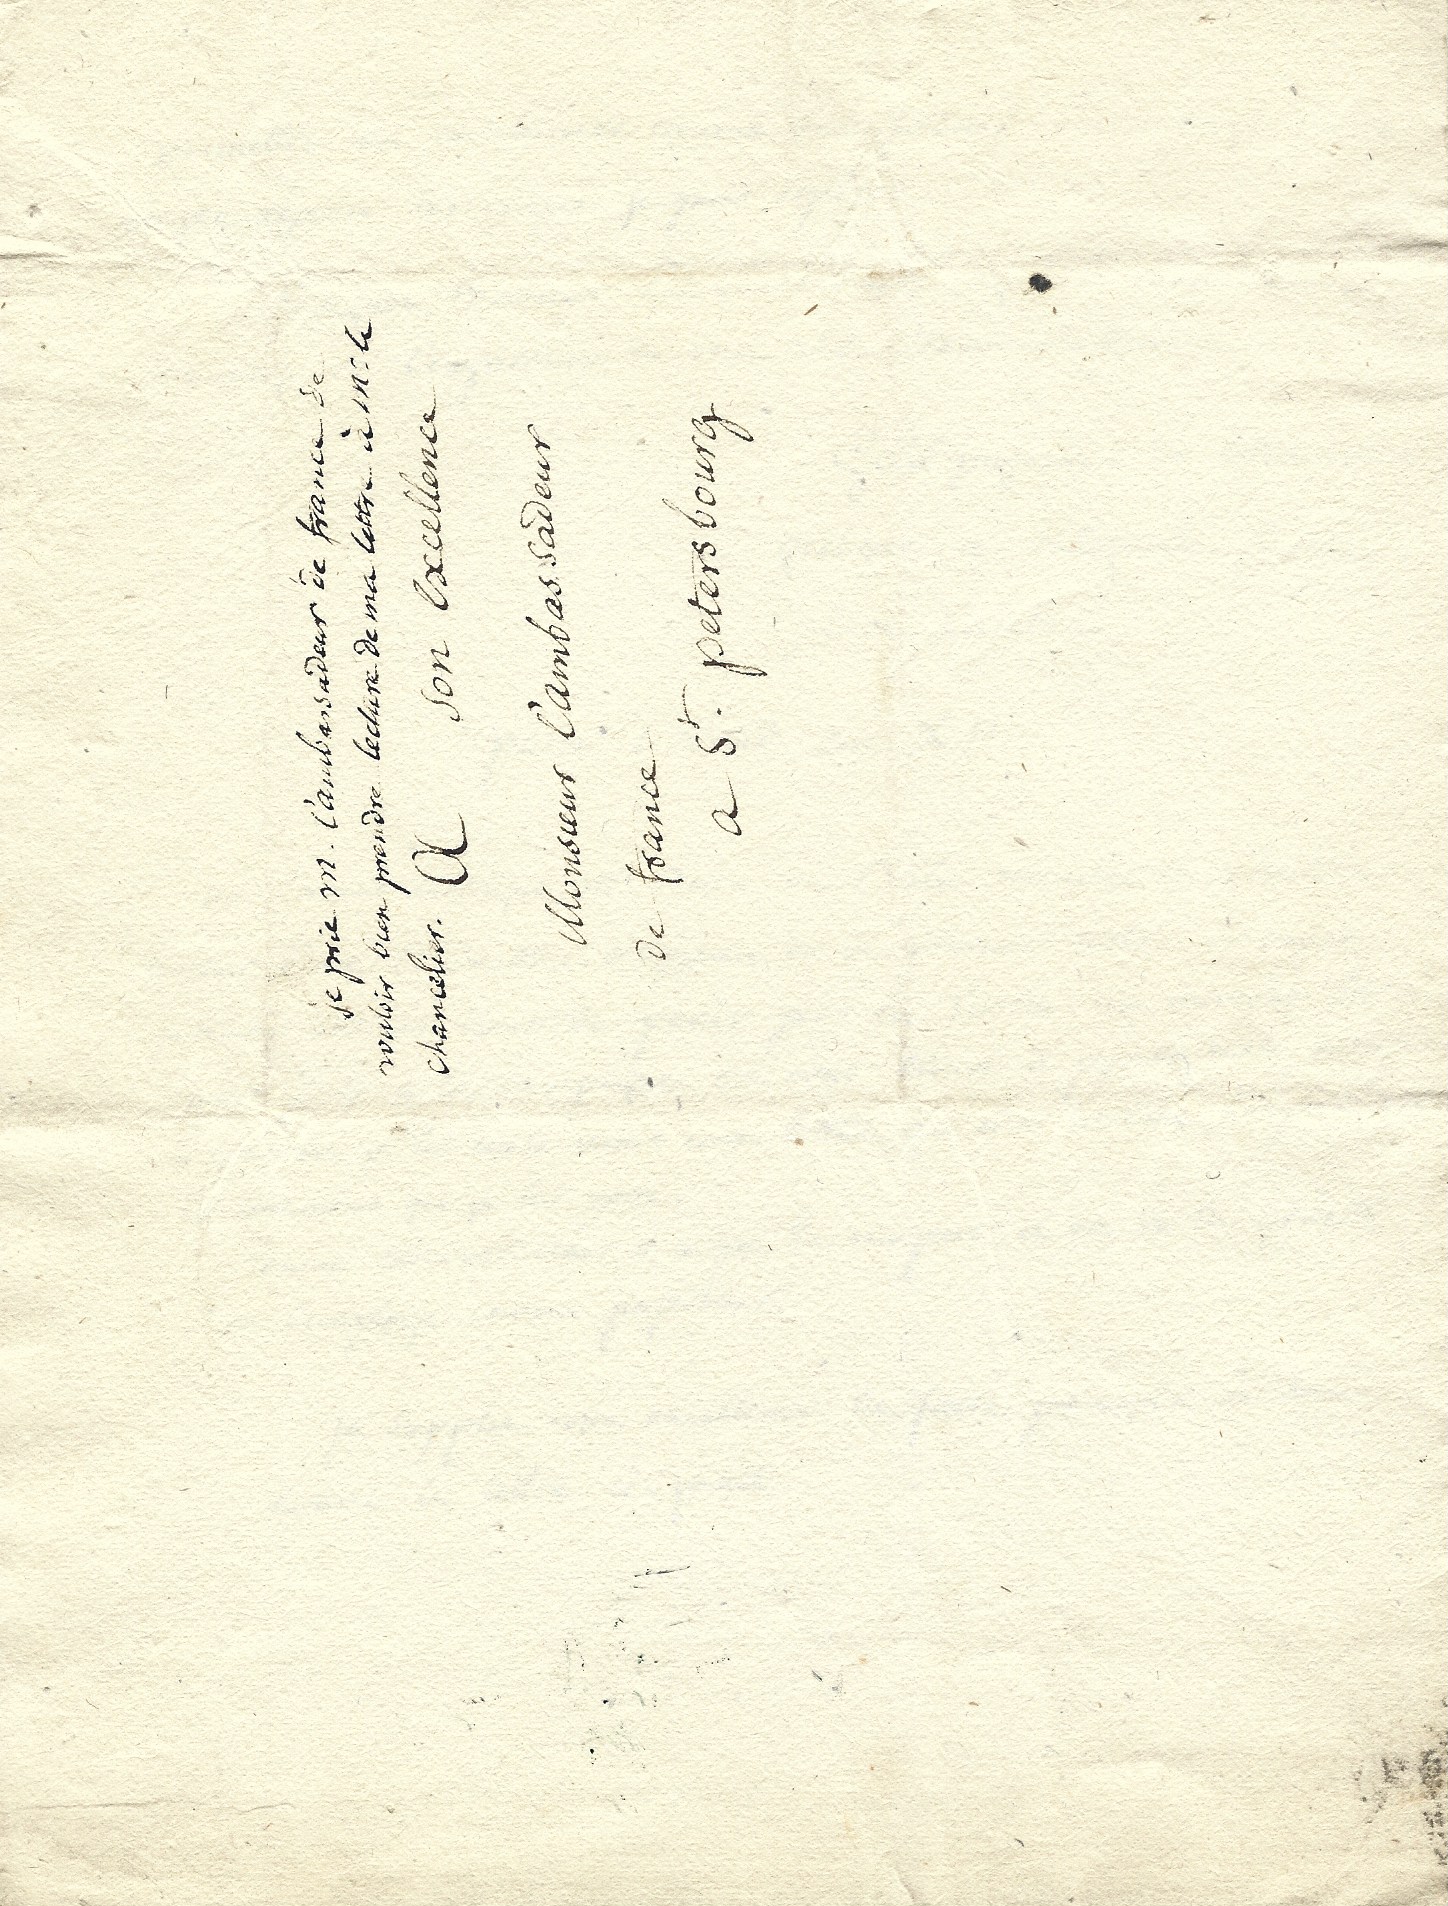 je prie m. l'ambassadeur de france de
vouloir bien prendre lecture de ma lettre à m. le
chancelier.
A son Excellence
Monsieur l'ambassadeur
de france
a St. petersbourg